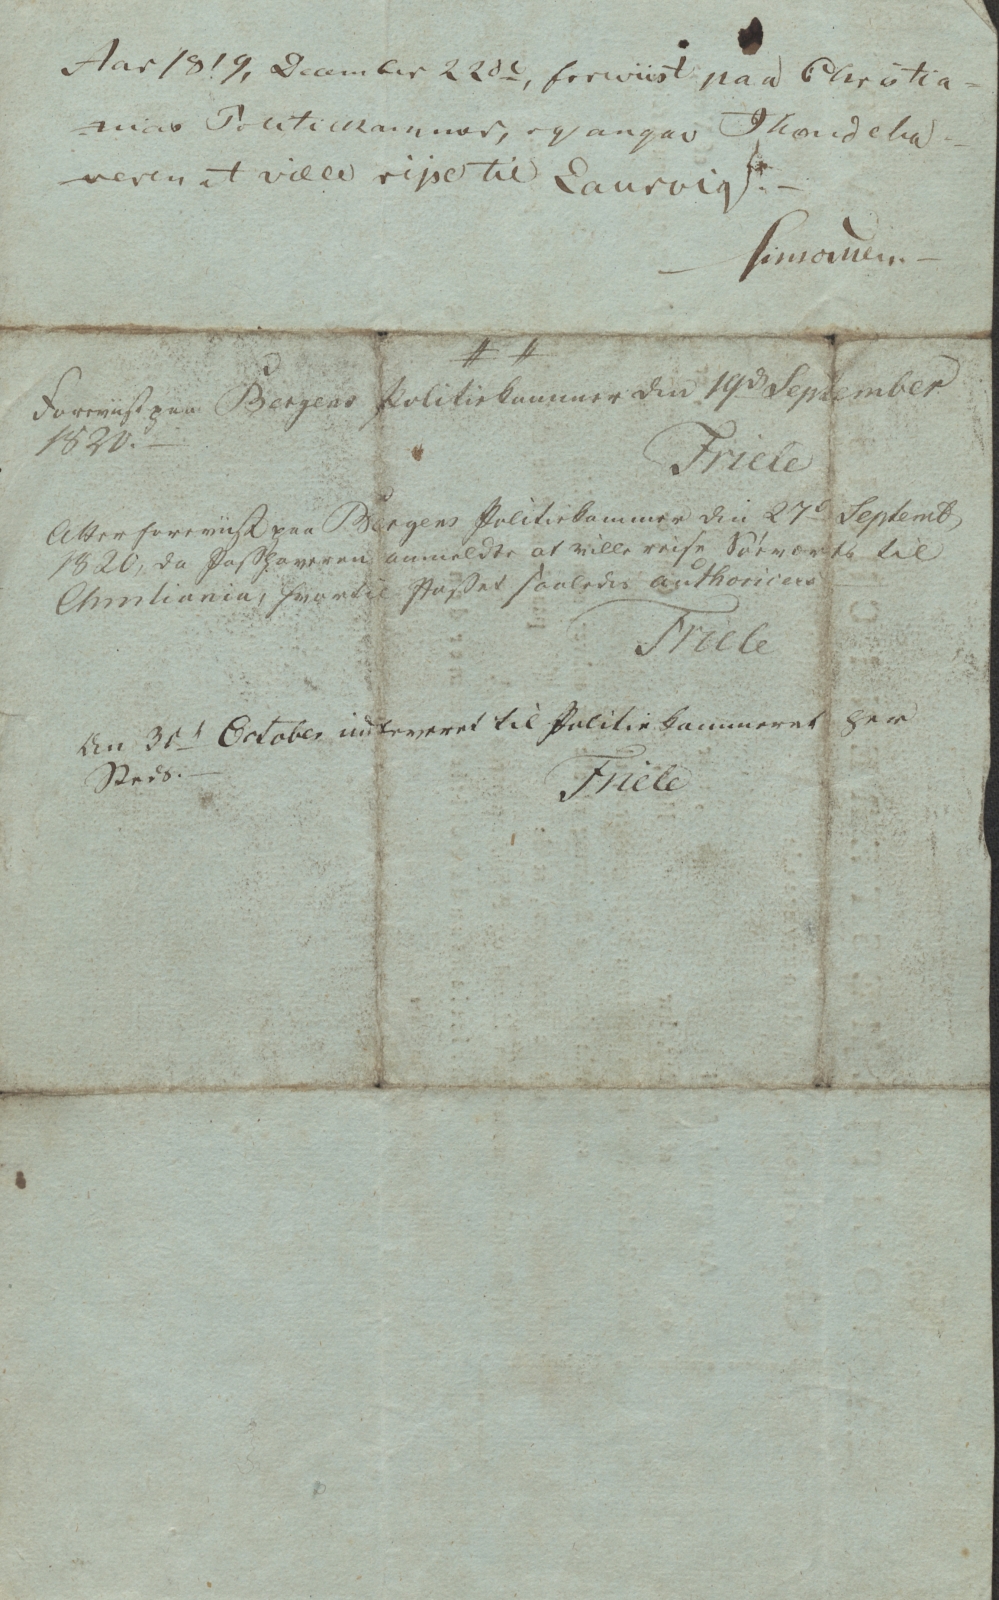 Aar 1819, December 22de, foreviist paa Christia-
nias Politiekammer, og angav Ihændeha-
veren at ville rejse til Laurvig. -
Simonsen. -
Foreviist paa Bergens Politiekammer den 19d September
1820. -
Friele
Atter foreviist paa Bergens Politiekammer den 27d Septemb
1820, da Passhaveren anmeldte at ville reise Søeværts til
Christiania, hvortil Passet saaledes authoriceres -
Friele
den 30d October indleveret til Politiekammeret her
Steds. -
Friele